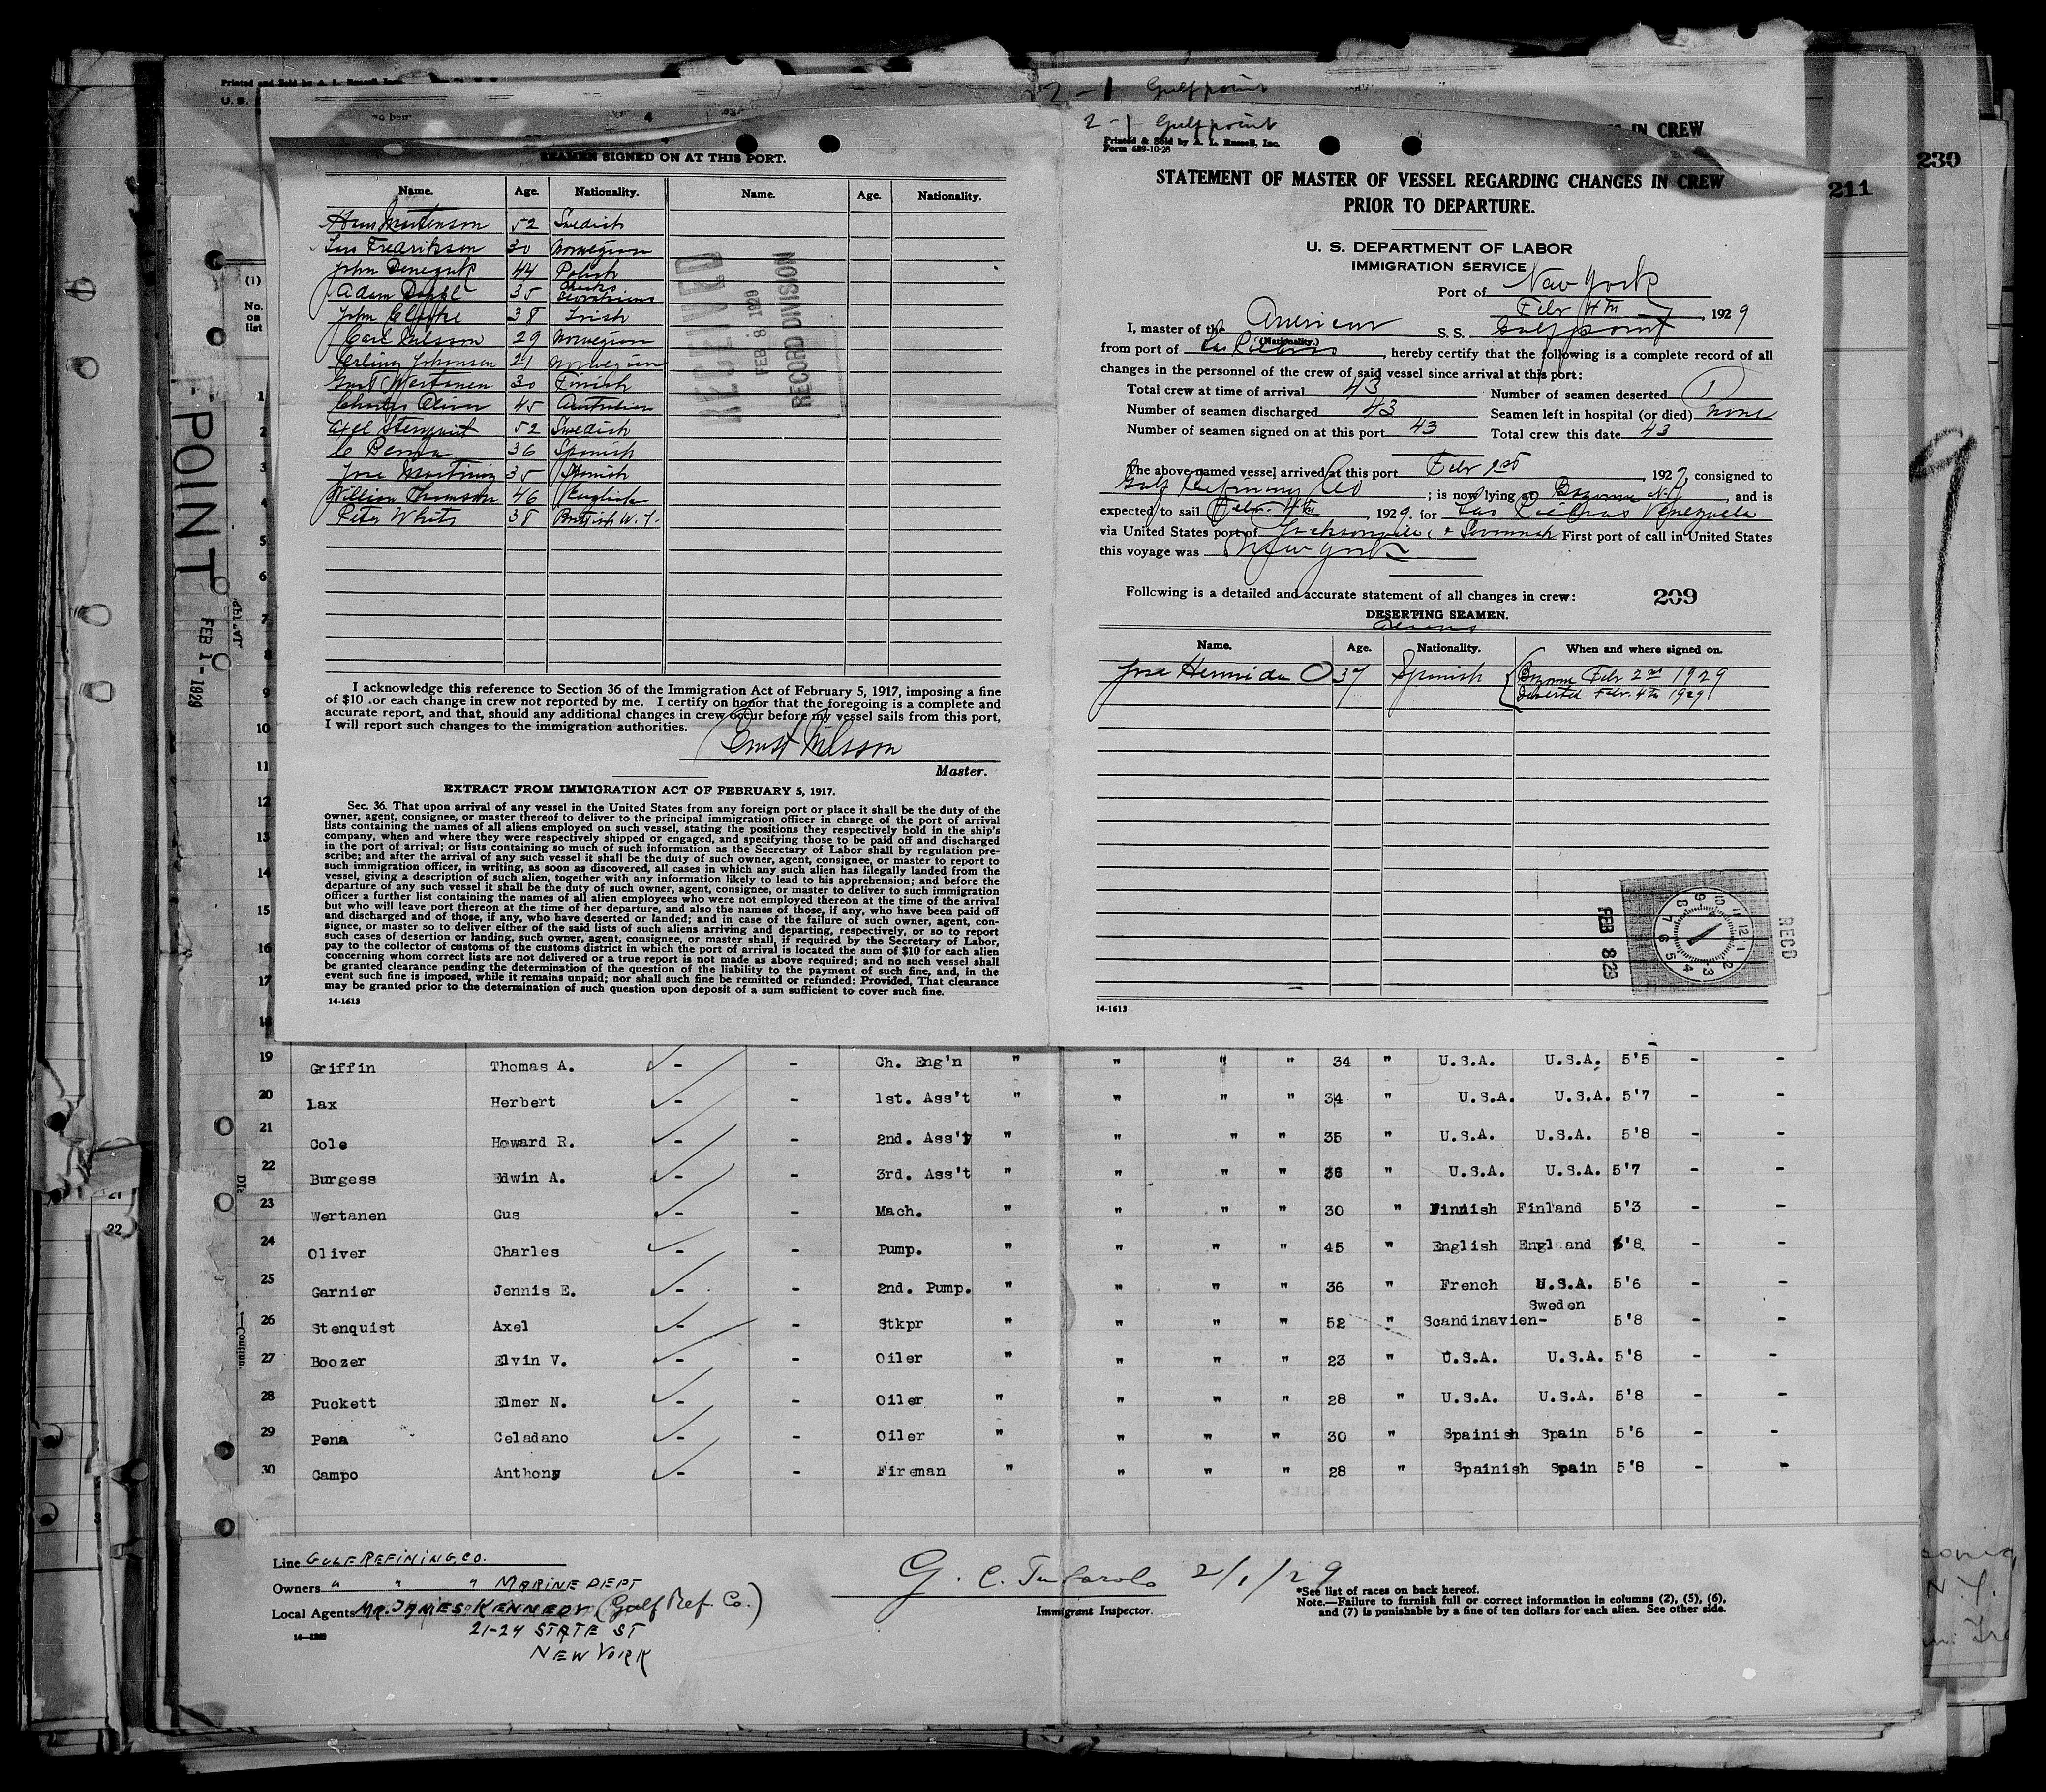 Printed and Sold by A. L. Russell, Inc.
U. S.
2-1 Gulfpoint
2-1 Gulfpoint
IN CREW
230
211
SEAMEN SIGNED ON AT THIS PORT.
Name. Age. Nationality. Name. Age. Nationality.
Hans Mortenson 52 Swedish
Lars Fredriksen 30 Norwegian
John 44 Polish
Adam 35
John Clarke 38 Irish
Carl Nilsson 29 Norwegian
Erling Johansen 21 Norwegian
Gust Wertanen 30 Finish
Charles Oliver 45 Australian
Axel Stenquist 52 Swedish
C Penna 36 Spanish
Jose Martinez 35 Spanish
William Thomson 46 English
Peter White 38 British W. I.
RECEIVED
FEB 8 1929
RECORD DIVISION
I acknowledge this reference to Section 36 of the Immigration Act of February 5, 1917, imposing a fine
of $10 .or each change in crew not reported by me. I certify on honor that the foregoing is a complete and
accurate report, and that, should any additional changes in crew occur before my vessel sails from this port,
I will report such changes to the immigration authorities.
Ernst Nilsson
Master.
EXTRACT FROM IMMIGRATION ACT OF FEBRUARY 5, 1917.
Sec. 36. That upon arrival of any vessel in the United States from any foreign port or place it shall be the duty of the
owner, agent, consignee, or master thereof to deliver to the principal immigration officer in charge of the port of arrival
lists containing the names of all aliens employed on such vessel, stating the positions they respectively hold in the ship's
company, when and where they were respectively shipped or engaged, and specifying those to be paid off and discharged
in the port of arrival; or lists containing so much of such information as the Secretary of Labor shall by regulation pre-
scribe; and after the arrival of any such vessel it shall be the duty of such owner, agent, consignee, or master to report to
such immigration officer, in writing, as soon as discovered, all cases in which any such alien has illegally landed from the
vessel, giving a description of such alien, together with any information likely to lead to his apprehension; and before the
departure of any such vessel it shall be the duty of such owner, agent, consignee, or master to deliver to such immigration
officer a further list containing the names of all alien employees who were not employed thereon at the time of the arrival
but who will leave port thereon at the time of her departure, and also the names of those, if any, who have been paid off
and discharged and of those, if any, who have deserted or landed; and in case of the failure of such owner, agent, con-
signee, or master so to deliver either of the said lists of such aliens arriving and departing, respectively, or so to report
such cases of desertion or landing, such owner, agent, consignee, or master shall, if required by the Secretary of Labor,
pay to the collector of customs of the customs district in which the port of arrival is located the sum of $10 for each alien
concerning whom correct lists are not delivered or a true report is not made as above required; and no such vessel shall
be granted clearance pending the determination of the question of the liability to the payment of such fine, and, in the
event such fine is imposed, while it remains unpaid; nor shall such fine be remitted or refunded: Provided, That clearance
may be granted prior to the determination of such question upon deposit of a sum sufficient to cover such fine.
14-1613
Printed & Sold by A. L. Russell, Inc.
Form 689-10-28
STATEMENT OF MASTER OF VESSEL REGARDING CHANGES IN CREW
PRIOR TO DEPARTURE.
U. S. DEPARTMENT OF LABOR
IMMIGRATION SERVICE
Port of New York
Febr 4th, 1929
I, master of the American S. S. Gulfpoint
(Nationality.)
from port of Las Piedras, hereby certify that the following is a complete record of all
changes in the personnel of the crew of said vessel since arrival at this port:
Total crew at time of arrival 43 Number of seamen deserted 1
Number of seamen discharged 43 Seamen left in hospital (or died) None
Number of seamen signed on at this port 43 Total crew this date 43
The above named vessel arrived at this port Febr 1st, 1929, consigned to
Gulf Refining Co; is now lying at Bayonne N.J., and is
expected to sail Febr. 4th, 1929. for Las Piedras Venezuela
via United States port of Jacksonville, & Savannah First port of call in United States
this voyage was New York
Following is a detailed and accurate statement of all changes in crew: 209
DESERTING SEAMEN.
Aliens
Name. Age. Nationality. When and where signed on.
Jose Hermida 37 Spanish Bayonne Febr 2nd 1929
Deserted Febr. 4th 1929
FEB 8 29
RECD
14-1613
POINT
FEB 1 - 1929
(1)
No. on list
1
2
3
4
5
6
7
8
9
10
11
12
13
14
15
16
17
18
19 Griffin Thomas A. - - Ch. Eng'n " " " " 34 " U.S.A. U.S.A. 5'5 - -
20 Lax Herbert - - 1st. Ass't " " " " 34 " U.S.A. U.S.A. 5'7 - -
21 Cole Howard R. - - 2nd. Ass't " " " " 35 " U.S.A. U.S.A. 5'8 - -
22 Burgess Edwin A. - - 3rd. Ass't " " " " 36 " U.S.A. U.S.A. 5'7 - -
23 Wertanen Gus - - Mach. " " " " 30 " Finnish Finland 5'3 - -
24 Oliver Charles - - Pump. " " " " 45 " English England 5'8 - -
25 Garnier Jennis E. - - 2nd. Pump. " " " " 36 " French U.S.A. 5'6 - -
26 Stenquist Axel - - Stkpr " " " " 52 " Scandinavien- Sweden 5'8 - -
27 Boozer Elvin V. - - Oiler " " " " 23 " U.S.A. U.S.A. 5'8 - -
28 Puckett Elmer N. - - Oiler " " " " 28 " U.S.A. U.S.A. 5'8 - -
29 Pena Celadano - - Oiler " " " " 30 " Spainish Spain 5'6 - -
30 Campo Anthony - - Fireman " " " " 28 " Spainish Spain 5'8 - -
Line GULF REFINING. CO.
Owners " " " MARINE DEPT
Local Agents MR. JAMES KENNEDY (Gulf Ref. Co.)
21-24 STATE ST
NEW YORK
14-1240
G. C. 2/1/29
Immigrant Inspector.
*See list of races on back hereof.
Note.—Failure to furnish full or correct information in columns (2), (5), (6),
and (7) is punishable by a fine of ten dollars for each alien. See other side.
22
9
N.Y.